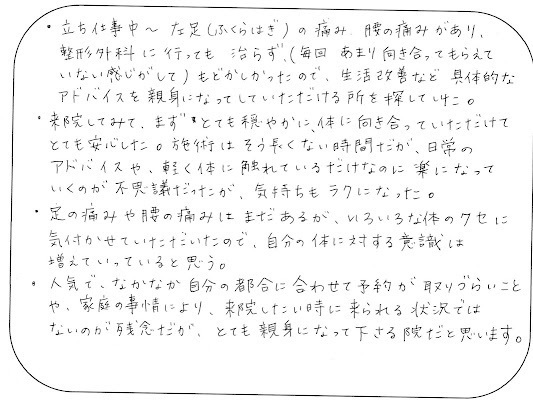 ・立ち仕事中～左足(ふくらはぎ)の痛み、腰の痛みがあり、
整形外科に行っても治らず、(毎回あまり向き合ってもらえて
いない感じがして)もどかしかったので、生活改善など具体的な
アドバイスを親身になってしていただける所を探していた。
・来院してみて、まずとても穏やかに、体に向き合っていただけて
とても安心した。施術はそう長くない時間だが、日常の
アドバイスや、軽く体に触れているだけなのに楽になって
いくのが不思議だったが、気持ちもラクになった。
・足の痛みや腰の痛みはまだあるが、いろいろな体のクセに
気付かせていただいたので、自分の体に対する意識は
増えていっていると思う。
・人気で、なかなか自分の都合に合わせて予約が取りづらいこと
や、家庭の事情により、来院したい時に来られる状況では
ないのが残念だが、とても親身になって下さる院だと思います。